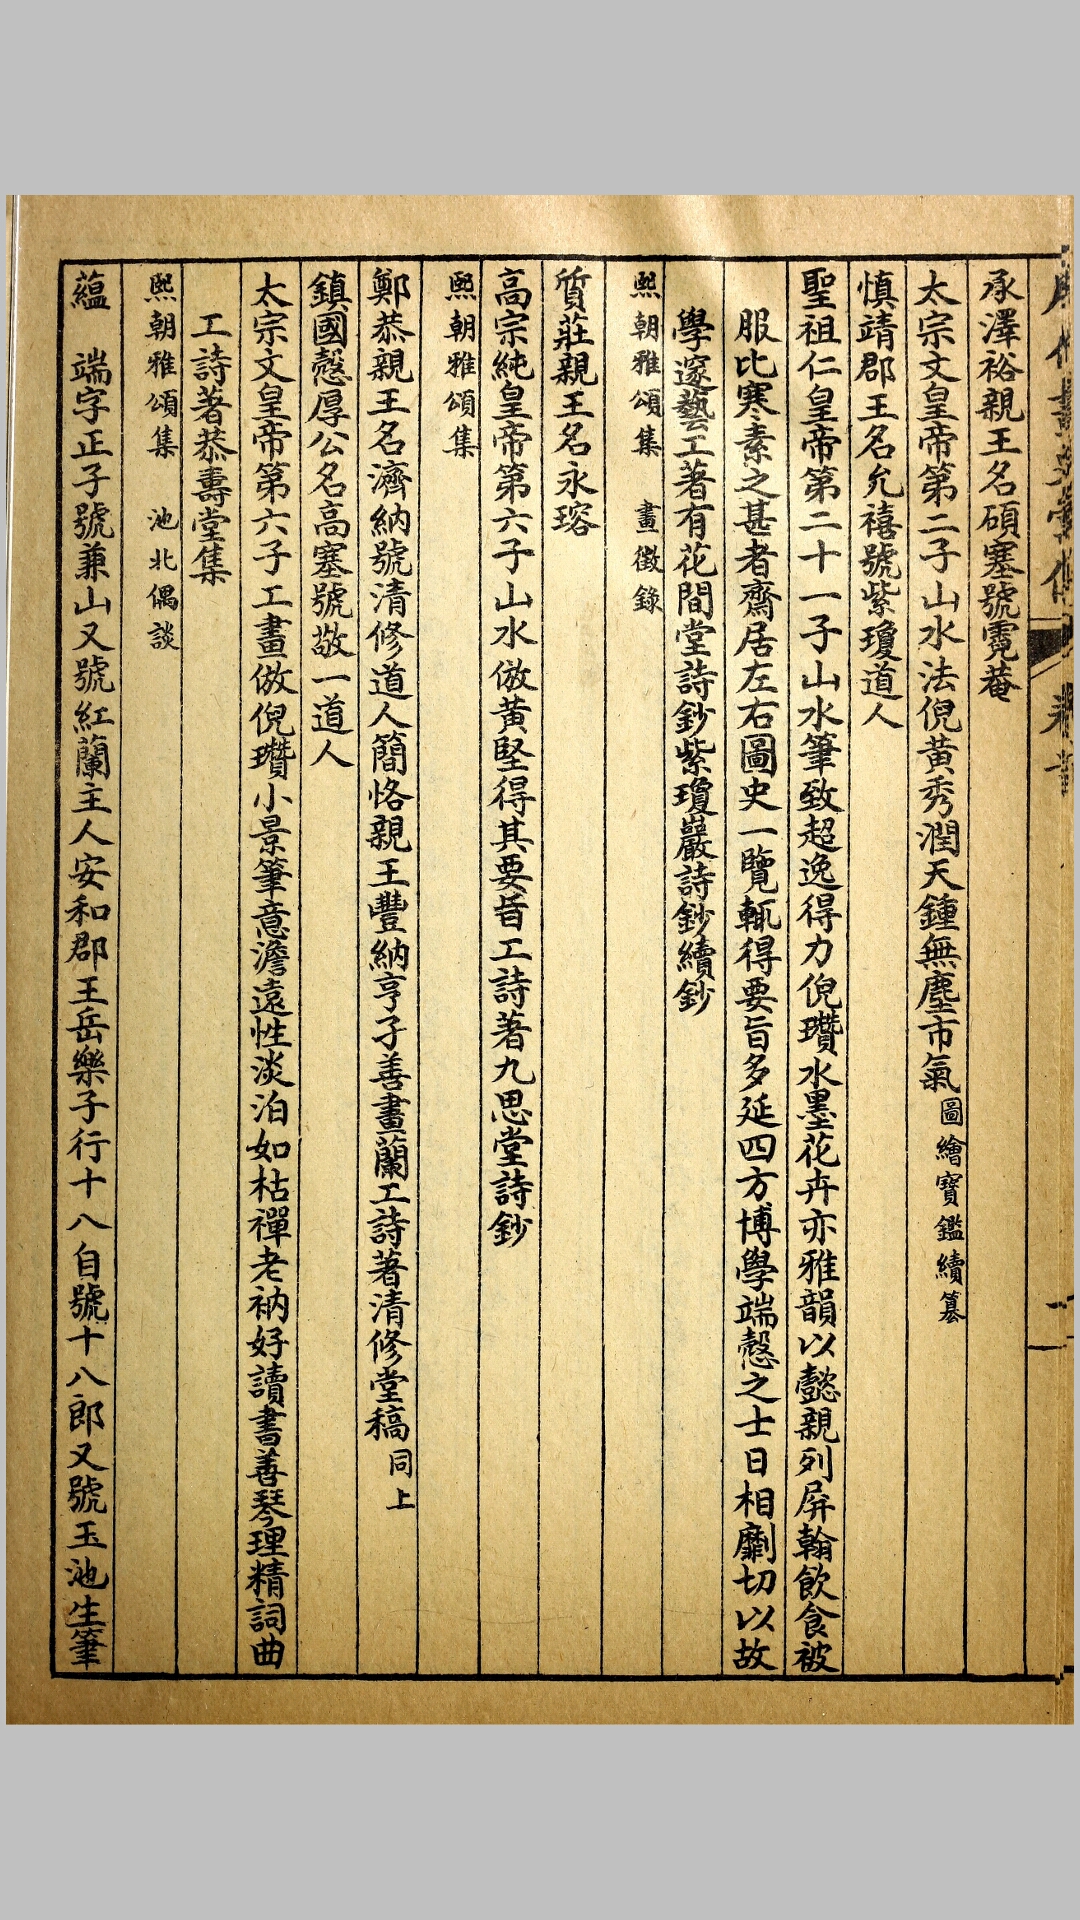 承澤裕親王名碩塞號霓菴
太宗文皇帝第二子山水法倪黃秀潤天鍾無塵市氣圖繪寶鑑續纂
慎靖郡王名允禧號紫瓊道人
聖祖仁皇帝第二十一子山水筆致超逸得力倪瓚水墨花卉亦雅韻以懿親列屏翰飲食被
服比寒素之甚者齋居左右圖史一覽輒得要旨多延四方博學端愨之士日相劘切以故
學邃藝工著有花間堂詩鈔紫瓊巖詩鈔續鈔
熙朝雅頌集 畫徵錄
質莊親王名永瑢
高宗純皇帝第六子山水倣黃堅得其要旨工詩著九思堂詩鈔
熙朝雅頌集
鄭恭親王名濟納號清修道人簡恪親王豐納亨子善畫蘭工詩著清修堂稿同上
鎮國愨厚公名高塞號敬一道人
太宗文皇帝第六子工畫倣倪瓚小景筆意澹遠性淡泊如枯禪老衲好讀書善琴理精詞曲
工詩著恭壽堂集
熙朝雅頌集 池北偶談
蘊 端字正子號兼山又號紅蘭主人安和郡王岳樂子行十八自號十八郎又號玉池生筆